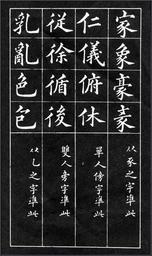 家象豪豕
从豕之字準此
仁儀俯休
單人傍字準此
従徐循後
雙人旁字準此
乳亂色包
从乚之字準此